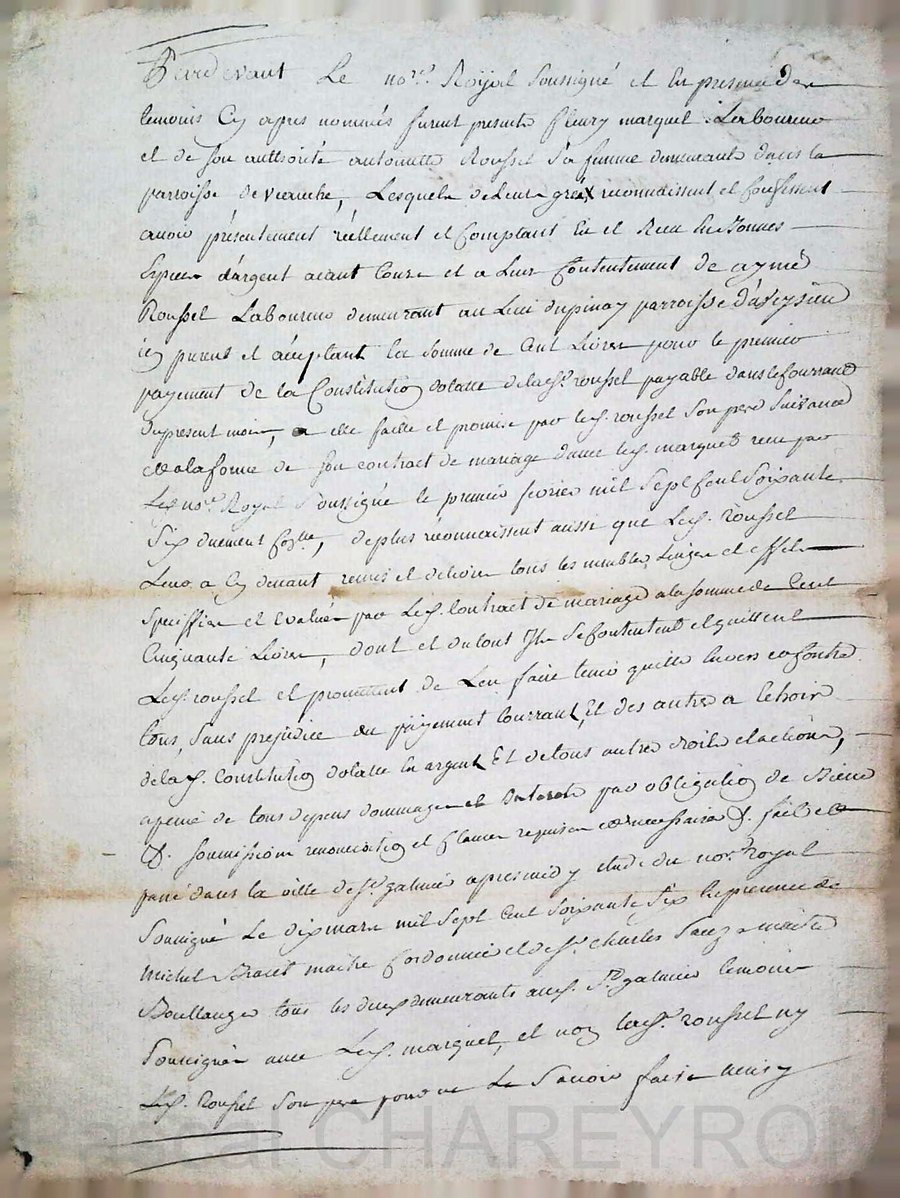 Pardevant Le no.re Royal Soussigné et En presence des
temoins Cy apres nommés furent presents fleury marquet Laboureur
et de son authorité antoinette Roussel Sa femme demeurants dans la
parroisse de veauche, Lesquels de Leurs grés reconnoissent et Confessent
avoir présentement réellement et Comptant Eü et Receu En bonnes
Especes d'argent aiant Cours et a Leur Contentement de aymé
Roussel Laboureur demeurant au Lieu dupinay parroisse d'aveysieu
icy present et acceptant la Somme de Cent Livres pour le premier
payement de la Constitution dotalle delad.e roussel payable dans le Courrant
du present mois, a elle faitte et promise par led. roussel Son pere Suivant
et a la forme de Son contract de mariage avec led. marquet reçu par
Led no.re Royal Soussigné le premier fevrier mil Sept Cent Soixante
Six duement Co.llé, deplus reconnoissent aussi que Led. roussel
Leur a Cy devant remis et delivré tous les meubles Linges et effets
Speciffiés et Evalués par Led. Contract de mariage a la somme de Cent
Cinquante Livres, dont et dutout Ils Se Contentent et quittent
Led. roussel et promettent de L'en faire tenir quitte Envers et Contre
tous, Sans prejudice du payement Courrant, Et des autres a Echoir
delad. Constitution dotalle En argent Et de tous autres droits et actions,
apeine de tous depens dommages et Interets par obligation de Biens
&. Soumission renonciation et Clauses requises et necessaires &. fait et
passé dans la ville de S.t galmier apresmidy Etude du no.re royal
Soussigné Le dix mars mil Sept Cent Soixante Six En presence de
Michel maitre Cordonnier et de S.r Charles maitre
Boullanger tous les deux demeurants aud. S.t galmier temoins
Soussignés avec Led. marquet, et non lad.e roussel ny
Led. Roussel Son pere pour ne Le Savoir faire
Pascal CHAREYRON